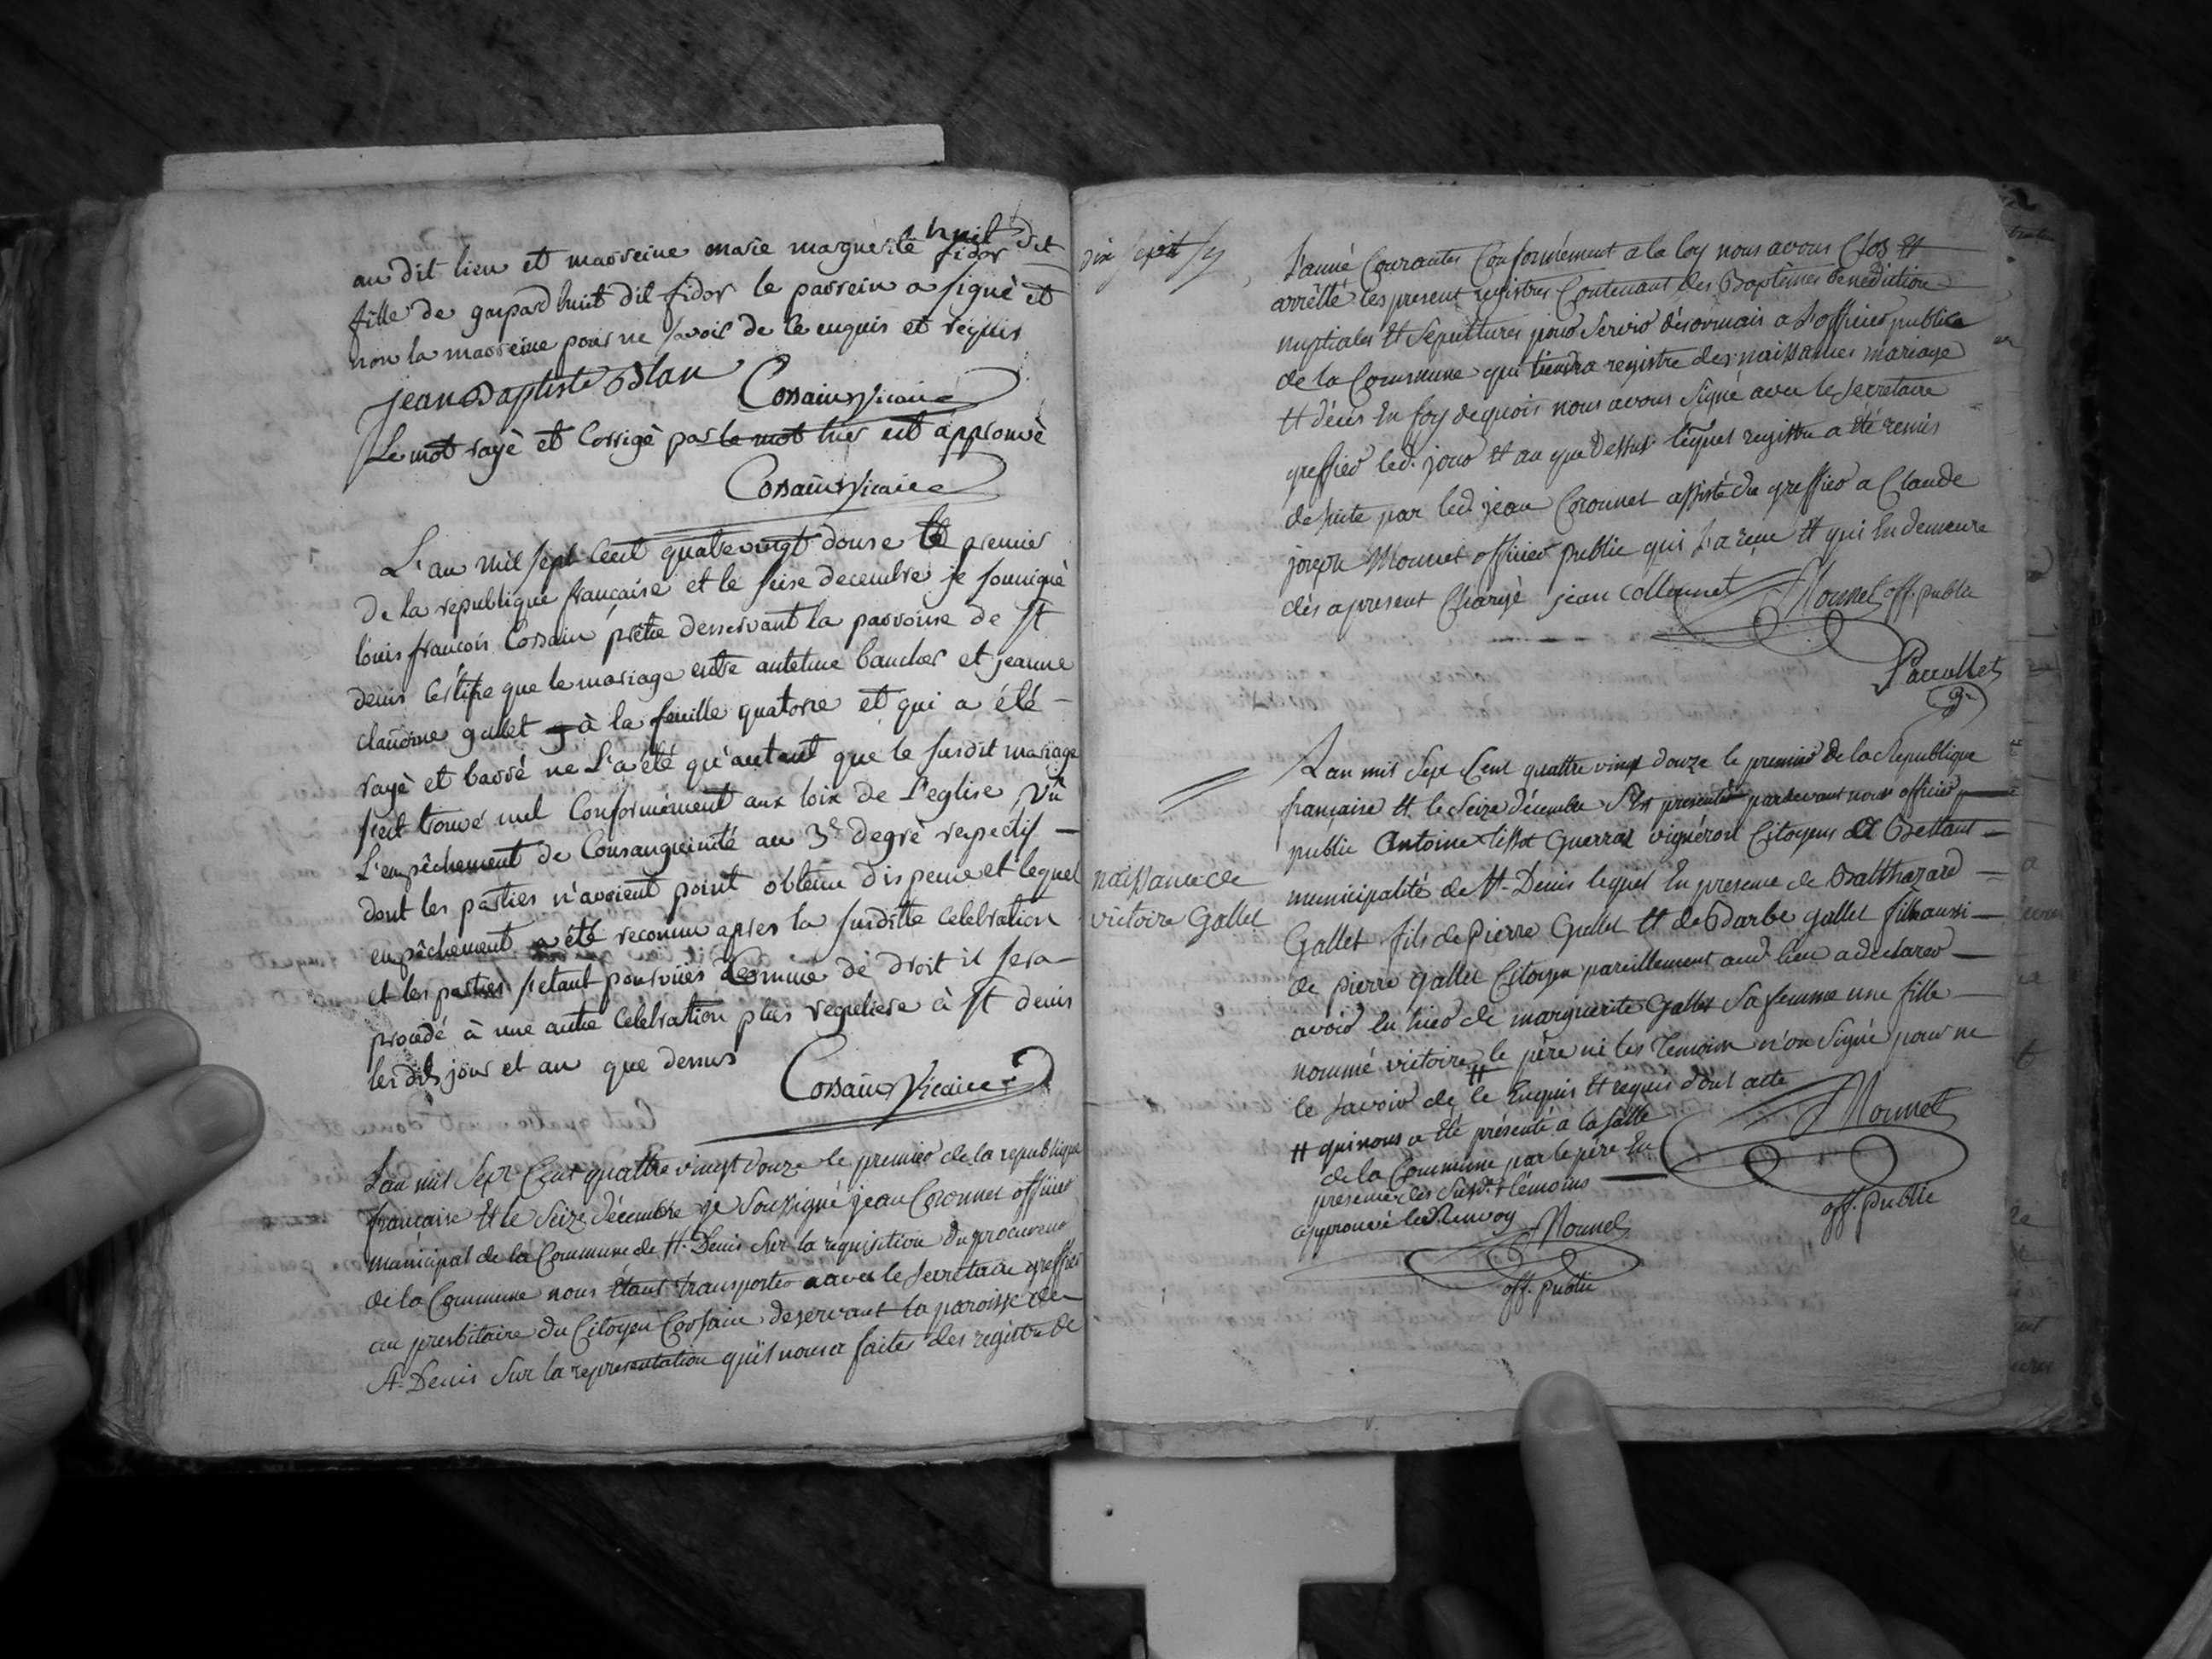 au dit lieu et marreine marie marguerite huit dit fidor
fille de gaspard huit dit fidor le parrein a signé et
non la marreine pour ne savoir de le enquis et requis
jean Baptiste Blan Cossain vicaire
Le mot rayè et Corrigè par le mot huit est approuvè
Cossain vicaire
L'an mil sept Cent quatrevingt douse le premier
de la republique française et le seise decembre je soussignè
louis françois Cossain prêtre desservant la parroisse de St
denis Certifie que le mariage entre antelme baucher et jeanne
claudine gallet à la feuille quatorse et qui a été
rayè et barré ne L'a été qu'autant que le susdit mariage
s'est trouvé nul Conformément aux loix de L'eglise, vû
L'empêchement de Consanguinité au 3e degrè respectif
dont les parties n'avoient point obtenu dispense et lequel
empêchement a été reconnu apres la susditte Celebration
et les parties s'etant pourvües Comme de droit il sera
procedé à une autre Celebration plus reguliere à St denis
les dits jour et an que dessus Cossain vicaire
L'an mil Sept Cent quattre vingt douze le premier de la republique
française Et le Seize décembre je Soussigné jean Coronnet officier
municipal de la Commune de St. Denis Sur la requisition du procureur
de la Commune nous étant transporter avec le Secretaire greffier
au presbitaire du Citoyen Cossain deservant la paroisse de
St. Denis Sur la representation qu'il nous a faites des registre de
dix sept
L'anné Courantes Conformément a la loy nous avons Clos Et
arrêtté les present registres Contenant les Baptêmes Benediction
nuptiales Et Sepultures pour Servir désormais a L'officier publica
de la Commune qui tiendra registre des naissances mariage
Et décès En foy dequoi nous avons Signé avec le Secretaire
greffier led. jour Et an que Dessus lequel registre a été remis
de suite par led. jean Coronnet assisté du greffier a Claude
joseph Monnet officier public qui L'a reçu Et qui En demeure
dès apresent Chargé jean collonnet Monnet off. public
Paccallet
gr
L'an mil Sept Cent quattre vingt douze le premier de la Republique
française Et le Seize décembre S'est presenté pardevant nous officier
public Antoine tissot Guerraz vignéron Citoyens de Bettant
naissance de
victoire Gallet
municipalité de St. Denis lequel En presence de Balthazard
Gallet fils de Pierre Gallet Et de Barbe gallet fille aussi
de pierre gallet Citoyen pareillement aud. lieu a déclarer
avoir Eu hier de marguerite Gallet Sa femme une fille
nommé victoire # le père ni les temoins n'on Signé pour ne
le savoir de le Enquis Et requis dont acte Monnet
off. public
# qui nous a été présenté a la salle
de la Commune par le père En
presence des Susd. témoins
approuvé le Renvoy Monnet
off. public